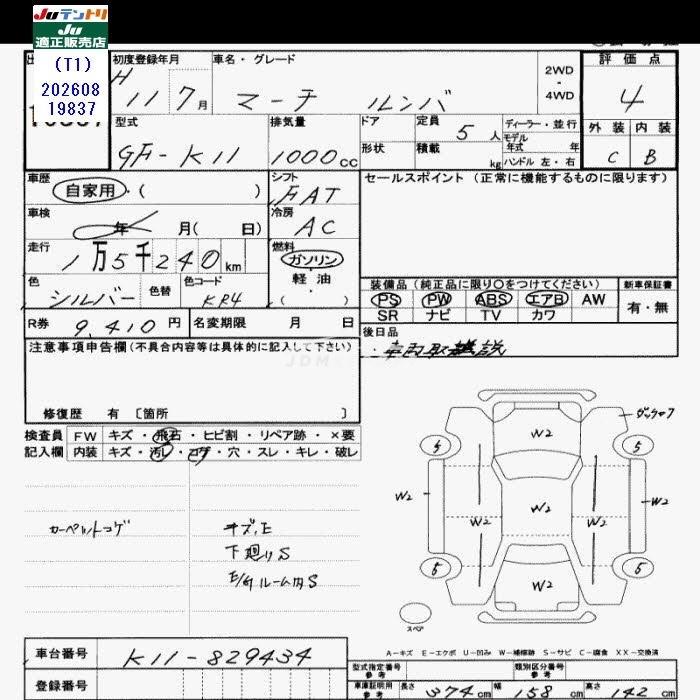 Juテントリ
Ju
適正販売店
(T1)
202608
19837
初度登録年月
車名・グレード
2WD
-
4WD
評価点
H
11 7月
マーチ ルンバ
4
型式
排気量
ドア
定員 5人
ディーラー・並行
モデル
年式 年
外装 内装
GF-K11
1000cc
形状
積載 kg
ハンドル 左・右
C B
車歴
自家用・( )
シフト
FAT
セールスポイント(正常に機能するものに限ります)
車検
年 月( 日)
冷房
AC
走行
1万5千240km
燃料
ガソリン
軽油
( )
色
シルバー
色替
色コード
KR4
装備品(純正品に限り○をつけてください)
新車保証書
PS PW ABS エアB AW
SR ナビ TV カワ
有・無
R券 9,410円
名変期限 月 日
後日品
注意事項申告欄(不具合内容等は具体的に記入して下さい)
修復歴 有 〔箇所 〕
検査員
記入欄
FW キズ・飛石・ヒビ割・リペア跡・×要
内装 キズ・汚レ・コゲ・穴・スレ・キレ・破レ
カーペットコゲ
キズ、E
下廻りS
E/Gルーム内S
W2
5
5
W2
W2
W2
W2
W2
5
W2
5
スペア
A-キズ E-エクボ U-凹み W-補修跡 S-サビ C-腐食 XX-交換済
車台番号
K11-829434
登録番号
型式指定番号
参考
類別区分番号
参考
車庫証明用
参考
長さ 374cm
幅 158cm
高さ 142cm